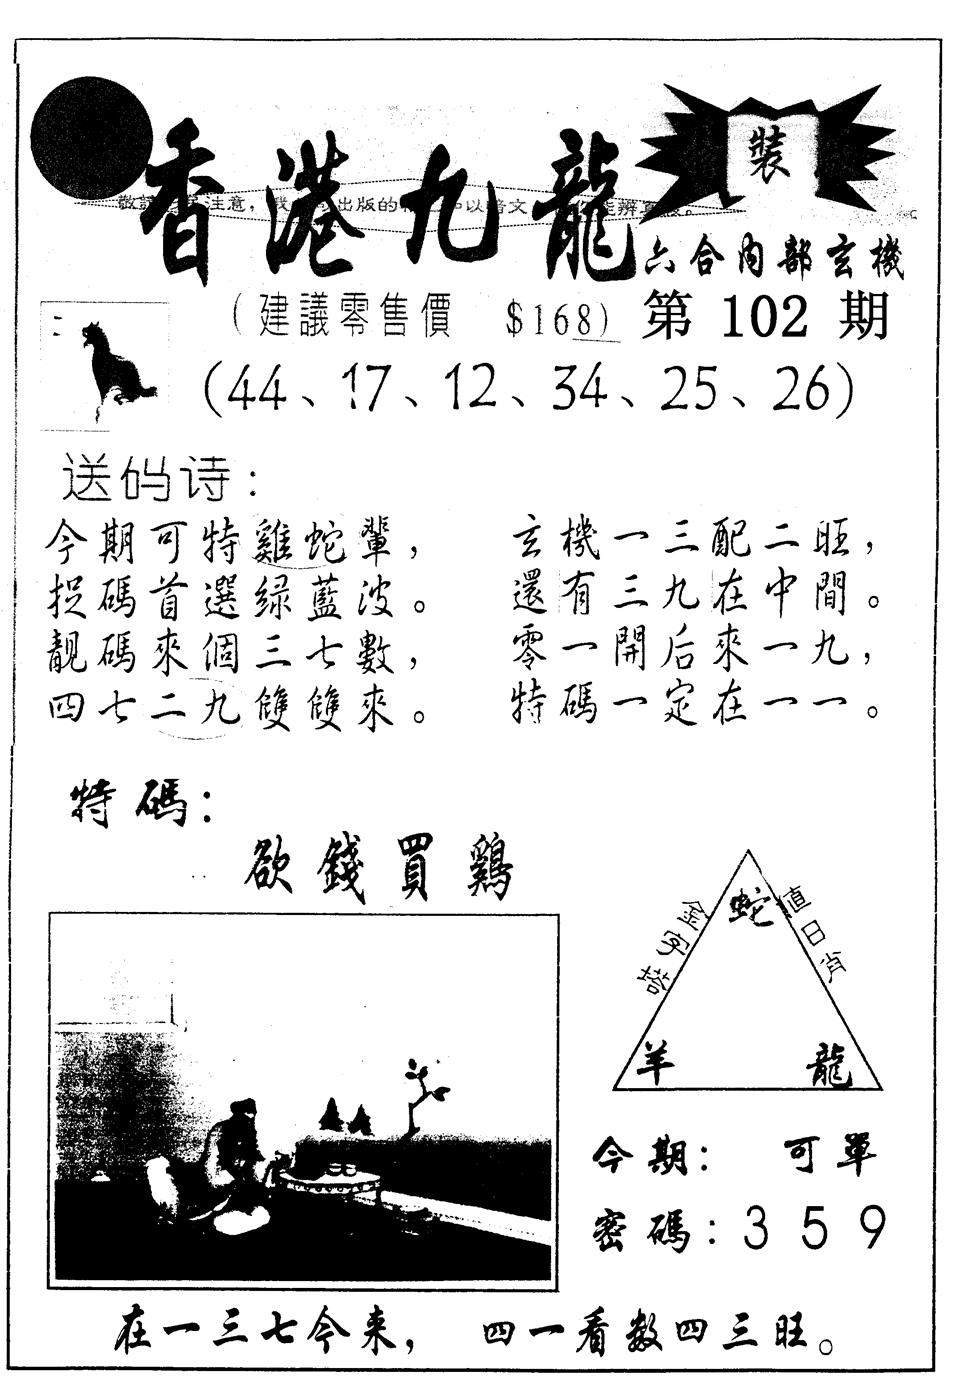 裝
香港九龍
六合内部玄機
(建議零售價 $168) 第 102 期
(44、17、12、34、25、26)
送码诗:
今期可特雞蛇輩, 玄機一三配二旺,
捉碼首選绿藍波。 還有三九在中間。
靚碼來個三七數, 零一開后來一九,
四七二九雙雙來。 特碼一定在一一。
特碼:
欲錢買鷄
金字塔
蛇
值日肖
羊
龍
今期: 可單
密碼: 3 5 9
在一三七今来, 四一看数四三旺。